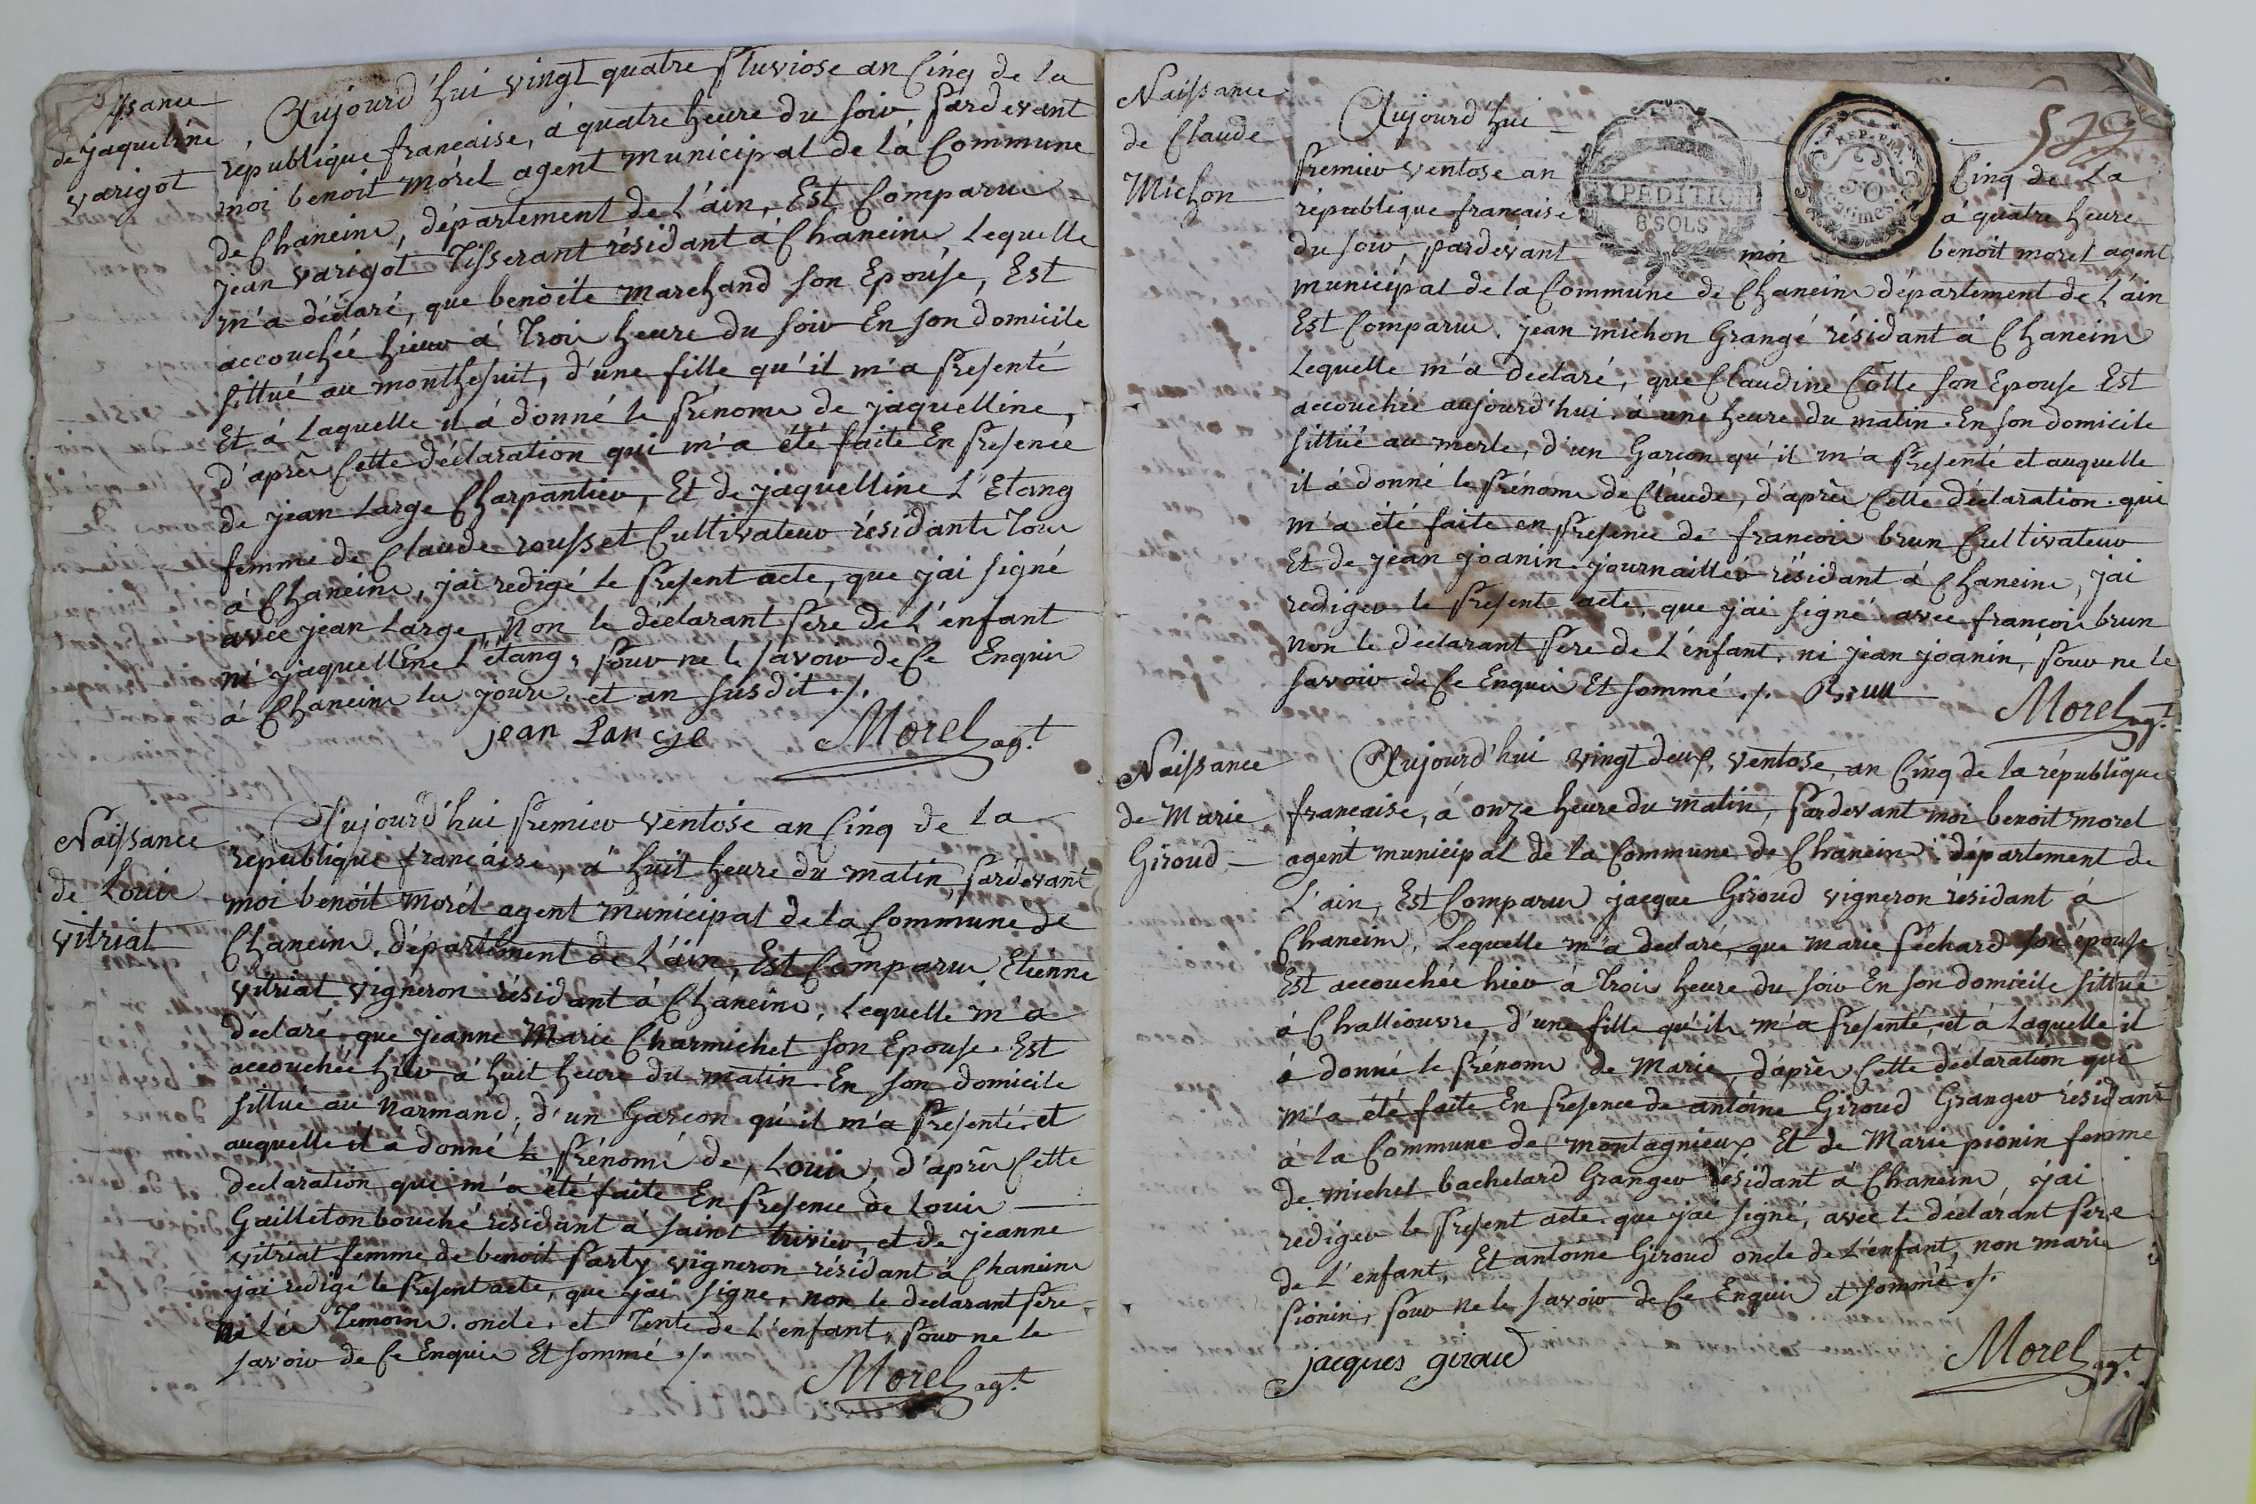 issance
de jaqueline
varigot
Aujourd'hui vingt quatre pluviose an Cinq de la
république française, à quatre heure du soir, pardevant
moi benoit morel agent municipal de la Commune
de Chaneins, département de L'ain, Est Comparu
jean varigot Tisserant résidant à Chaneins, Lequelle
m'a déclaré, que benoite marchand son Epouse, Est
accouchée hier à Trois heure du soir En son domicile
sittué au monthesuit, d'une fille qu'il m'a presenté
Et à Laquelle il à donné le prénoms de jaquelline,
d'après Cette déclaration qui m'a été faite En presence
de jean Large Charpantier, Et de jaquelline L'Etang
femme de Claude rousset Cultivateur résidants Tous
à Chaneins, jai redigé le present acte, que jai signé
avec jean Large, Non le déclarant pere de L'enfant
ni jaquelline L'étang, pour ne le savoir de Ce Enquis
à Chaneins les jours et an susdit ./.
jean Large Morel agt
Naissance
de Louis
vitriat
Aujourd'hui premier ventose an Cinq de la
république française, à huit heure du matin pardevant
moi benoit morel agent municipal de la Commune de
Chaneins, département de L'ain, Est Comparu Etienne
vitriat vigneron résidant à Chaneins, Lequelle m'a
déclaré que jeanne Marie Charmichet son Epouse Est
accouchée hier à huit heure du matin En son domicile
sittué au Narmand, d'un Garcon qu'il m'a presenté et
auquelle il a donné le prénoms de, Louis, d'après Cette
declaration qui m'a été faite En presence de Louis
Gailleton bouché résidant à saint trivier, et de jeanne
vitriat femme de benoit party vigneron résidant à Chaneins
jai redigé le present acte, que jai signé, non le declarant pere
ni Les Temoins. oncle, et Tente de L'enfant, pour ne le
savoir de Ce Enquis Et sommé ./.
Morel agt
Naissance
de Claude
Michon
Aujourd'hui
premier ventose an Cinq de La
république française à quatre heure
du soir, pardevant moi benoit morel agent
EXPEDITION
8 SOLS
REP. FRA.
50
centimes
municipal de la Commune de Chaneins département de L'ain
Est Comparu. jean michon Grangé résidant à Chaneins
Lequelle m'a declaré, que Claudine Cotte son Epouse Est
accouchée aujourd'hui à une heure du matin En son domicile
sittué au merle, d'un Garcon qu'il m'a presenté et auquelle
il à donné le prénoms de Claude, d'après Cette déclaration qui
m'a été faite en presence de francois brun Cultivateur
Et de jean joanin journailler résidant à Chaneins, jai
rediger le present acte que jai signé avec francois brun
Non le déclarant pere de L'enfant, ni jean joanin, pour ne le
savoir de Ce Enquis Et sommé ./. Brun
Morel agt
Naissance
de Marie
Giroud
Aujourd'hui vingt deux ventose, an Cinq de la république
francaise, à onze heure du matin, pardevant moi benoit morel
agent municipal de la Commune de Chaneins département de
L'ain, Est Comparu jacque Giroud vigneron résidant à
Chaneins, Lequelle m'a declaré, que marie péchard son épouse
Est accouchée hier à Trois heure du soir En son domicile sittué
à Challiouvre, d'une fille qu'il m'a presenté, et à Laquelle il
à donné le prénoms de Marie, d'après Cette déclaration qui
m'a été faite En presence de antoine Giroud Granger résidant
à la Commune de montagnieux Et de Marie pionin femme
de michel bachelard Granger résidant à Chaneins, jai
rediger le present acte que jai signé, avec le déclarant pere
de L'enfant, Et antoine Giroud oncle de L'enfant, non marie
pionin, pour Ne le savoir de Ce Enquis et sommé ./.
jacques giroud Morel agt